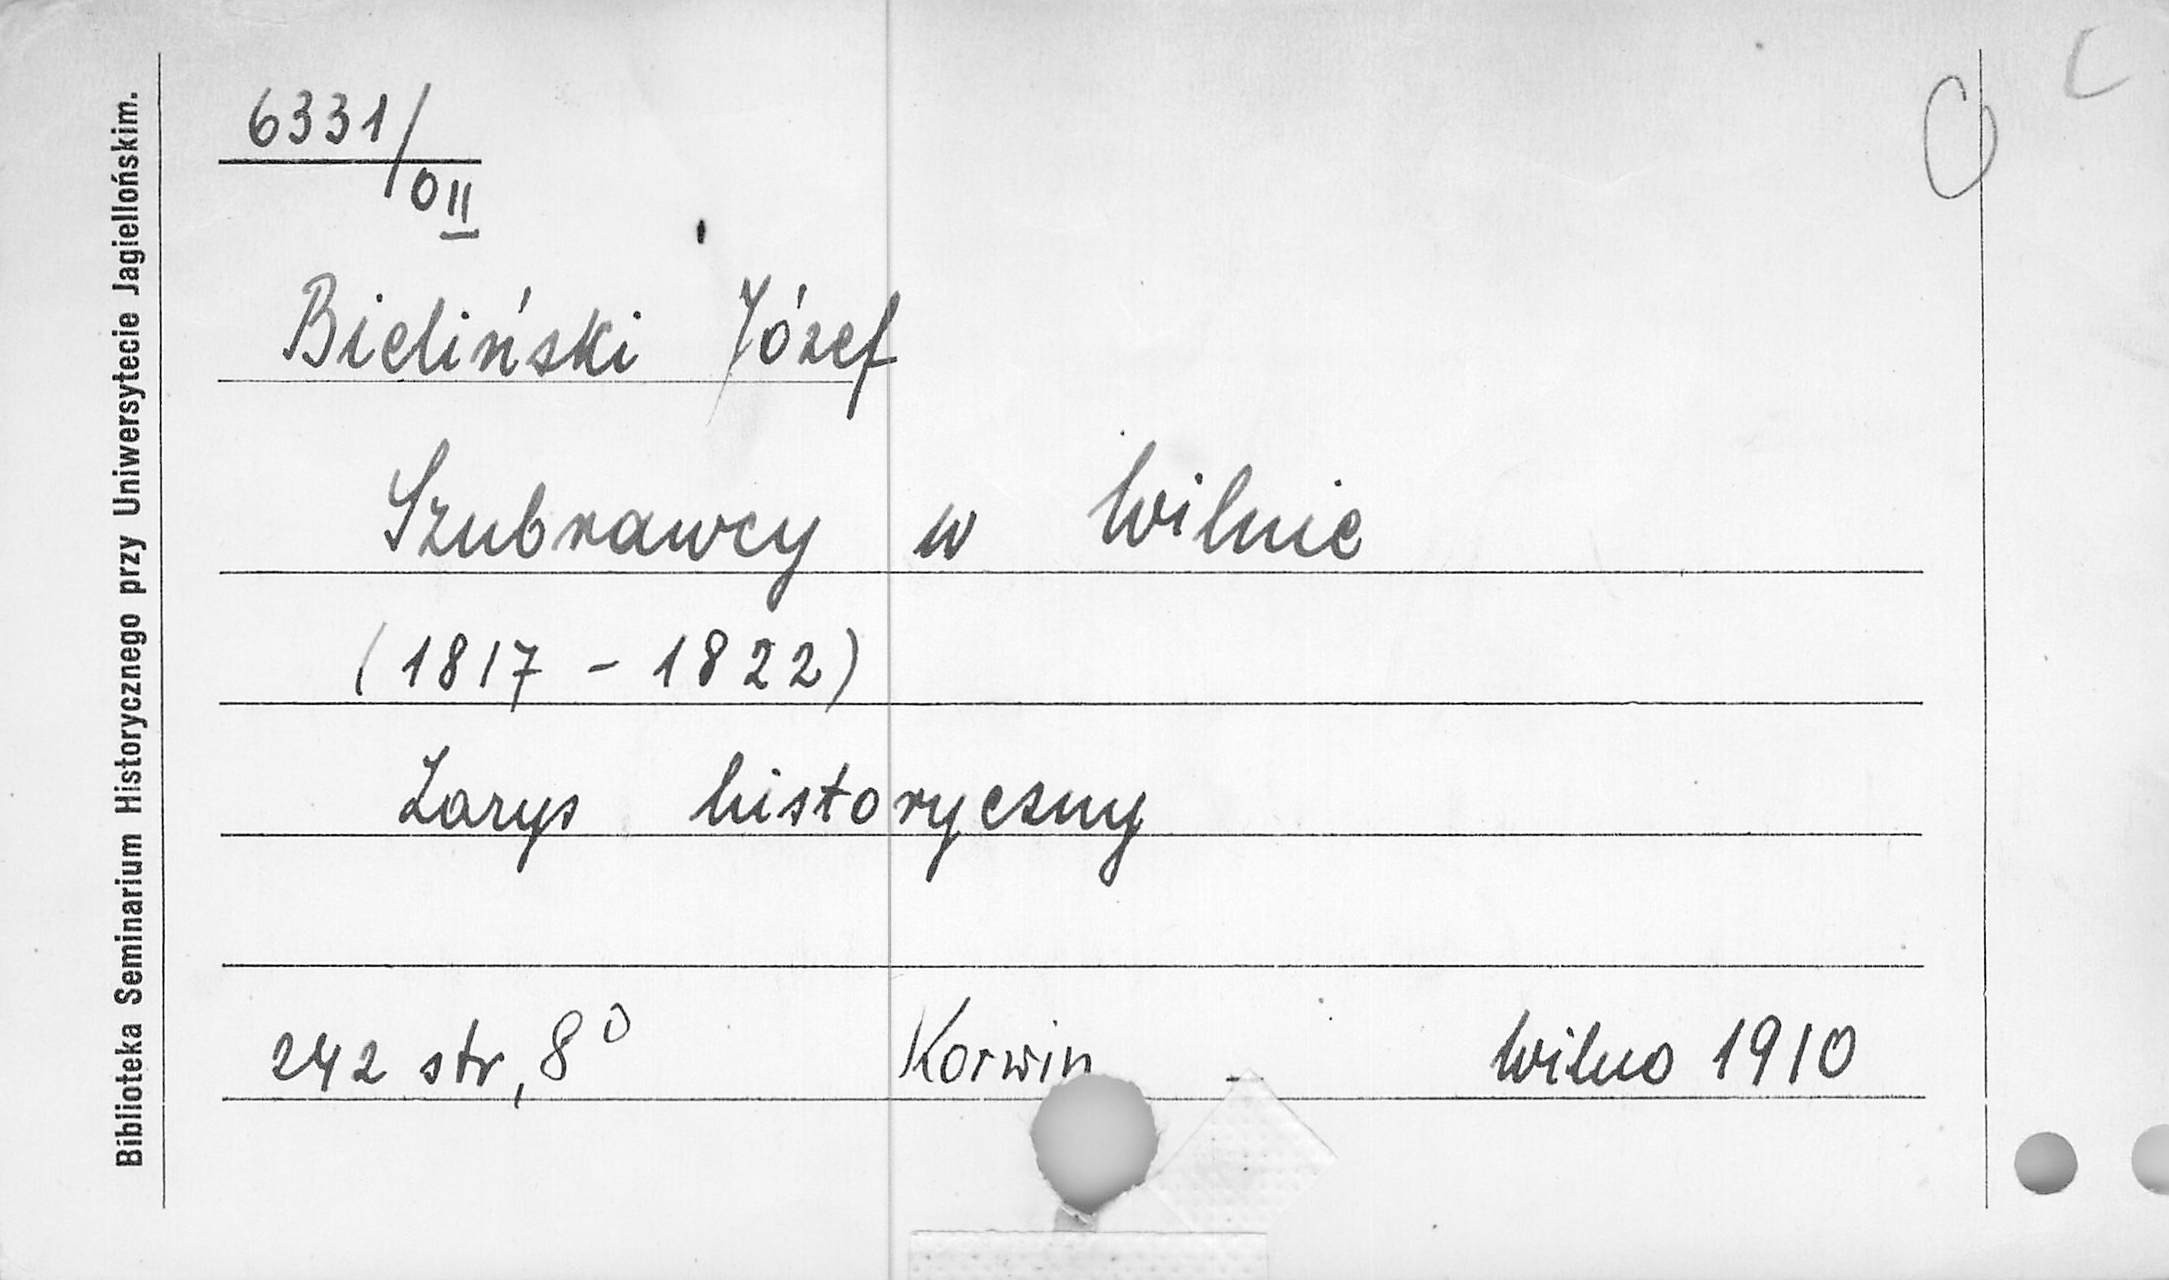 Biblioteka Seminarium Historycznego przy Uniwersytecie Jagiellońskim.
6331/
OII
Bieliński Józef
Szubrawcy w Wilnie
(1817 - 1822)
Zarys historyczny
242 str, 8° Korwin Wilno 1910